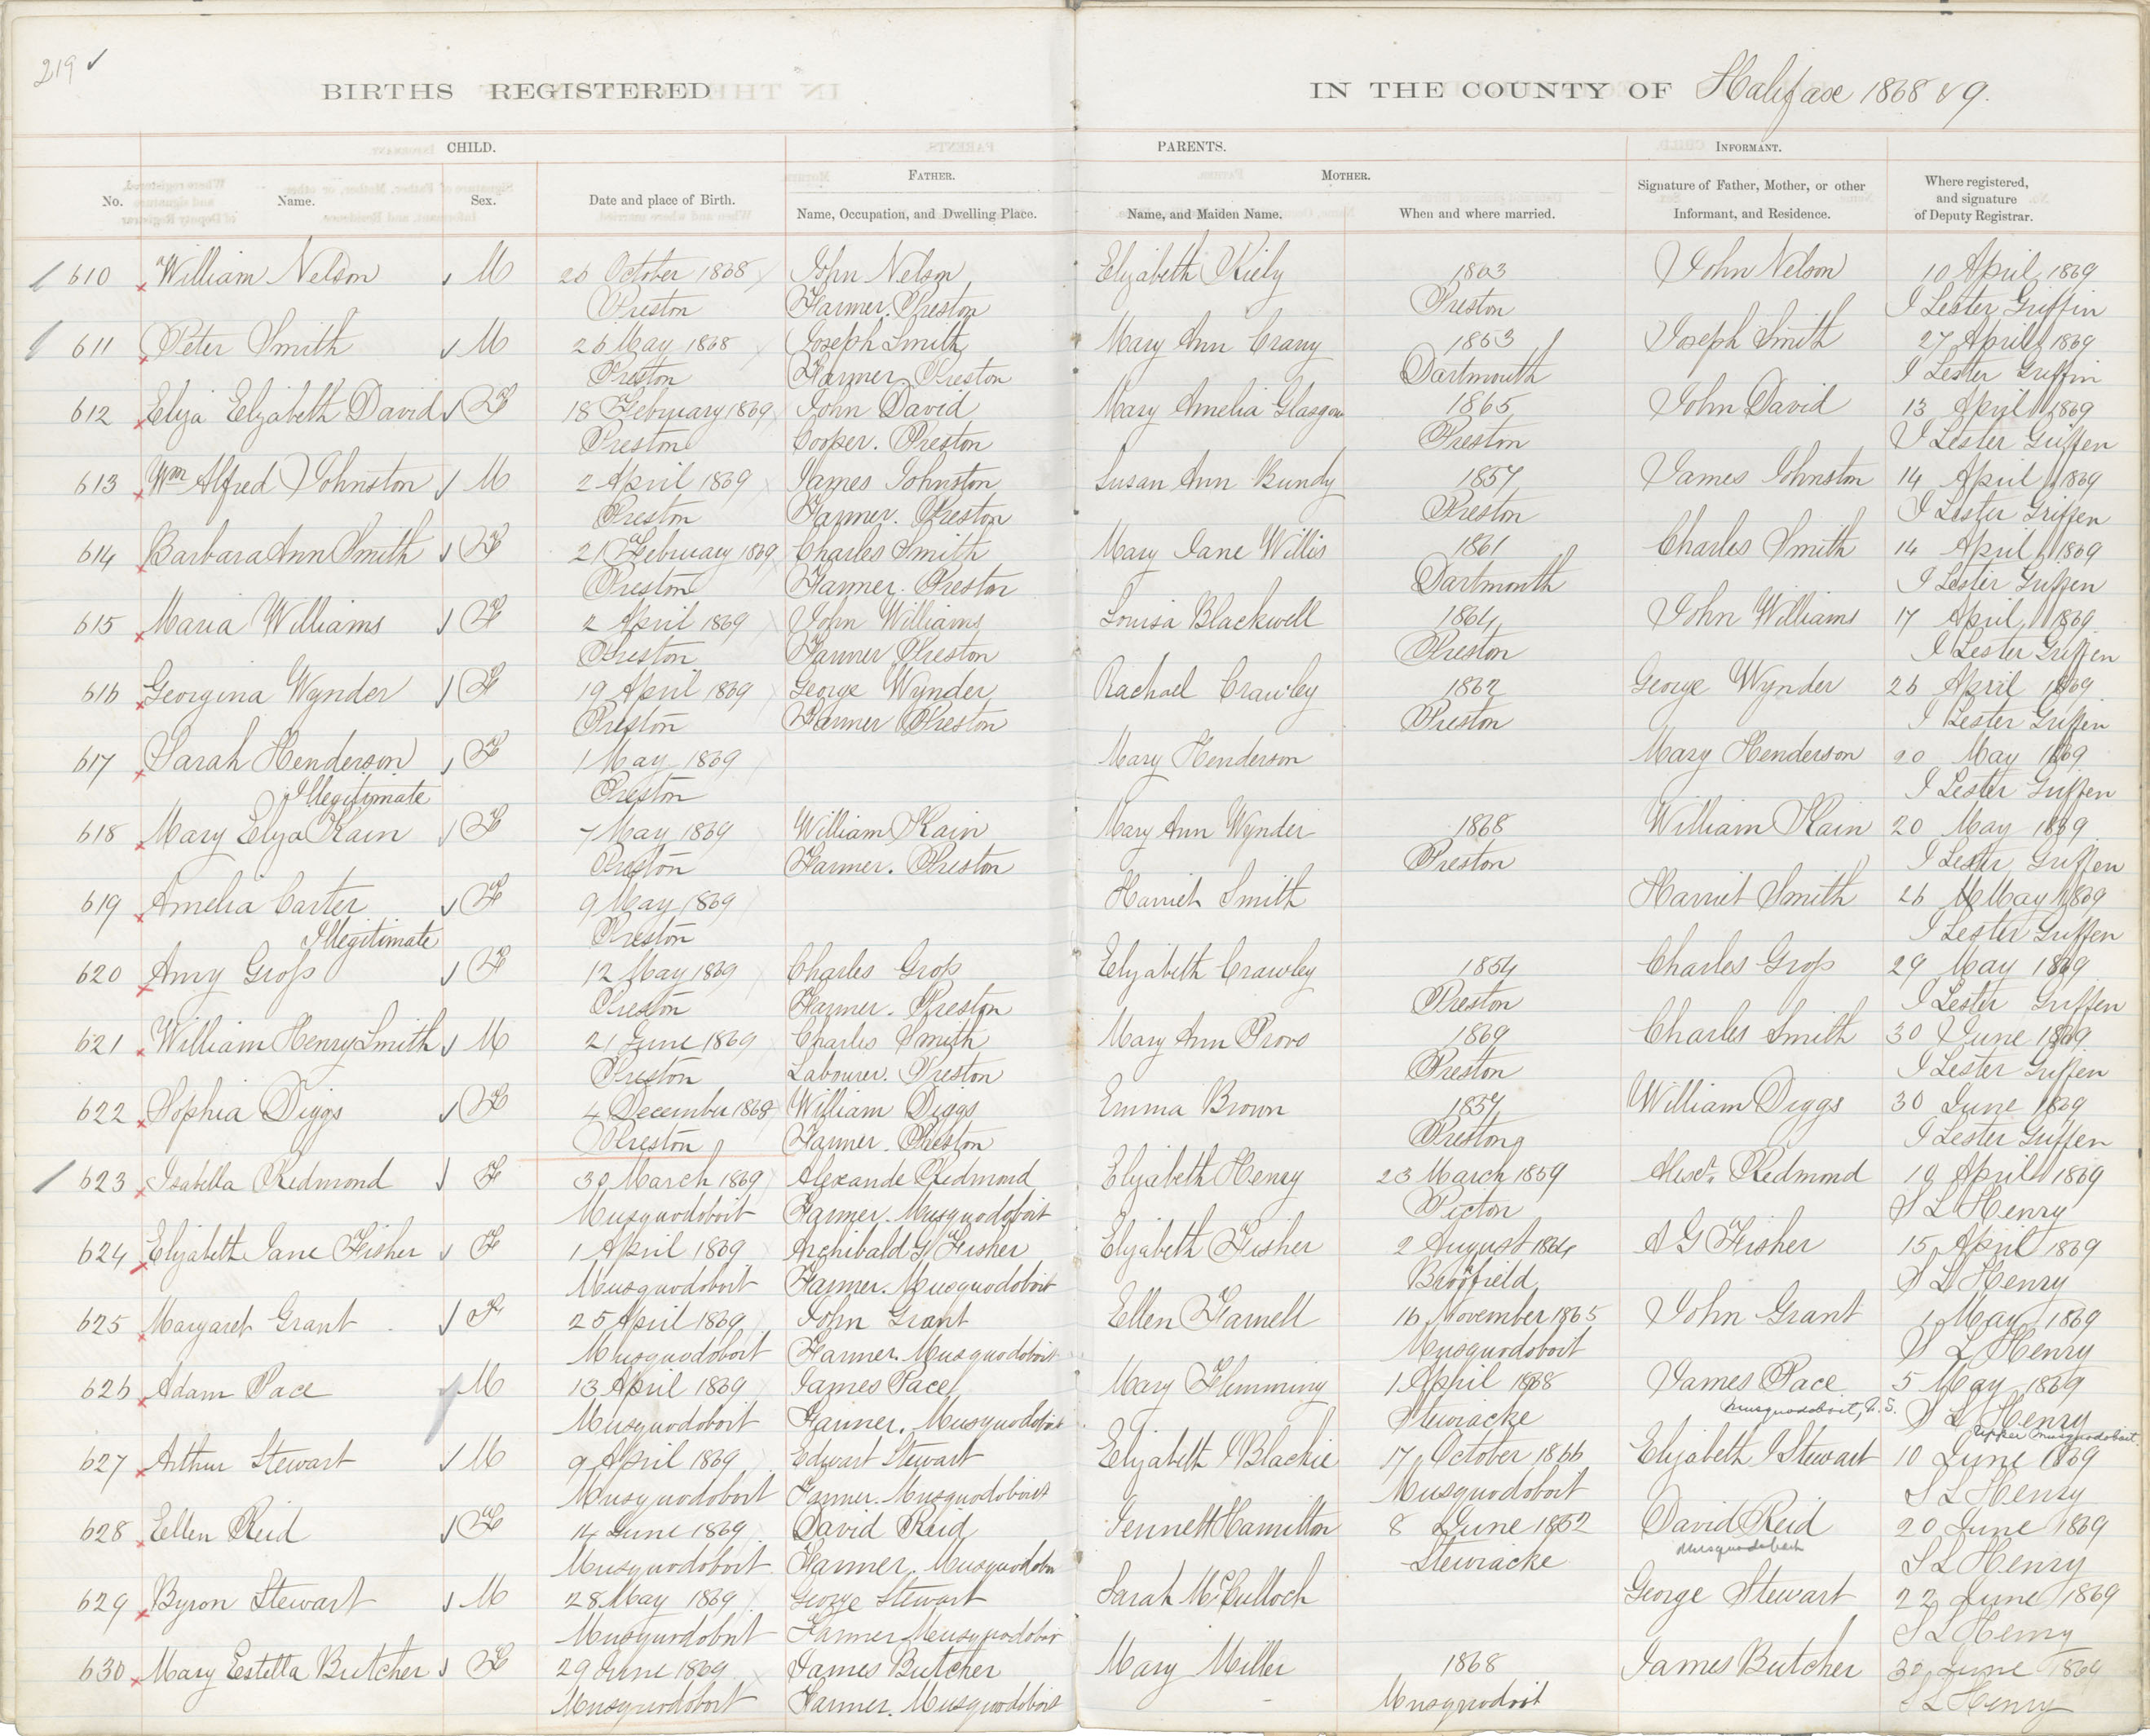 219 ✓
BIRTHS REGISTERED IN THE COUNTY OF Halifax 1868 & 9.
CHILD. PARENTS. INFORMANT.
FATHER. MOTHER.
No. Name. Sex. Date and place of Birth. Name, Occupation, and Dwelling Place. Name, and Maiden Name. When and where married. Signature of Father, Mother, or other Informant, and Residence. Where registered, and signature of Deputy Registrar.
610 William Nelson M 26 October 1868 John Nelson Elizabeth Kiely 1863 John Nelson 10 April 1869
Preston Farmer. Preston Preston I Lester Griffin
611 Peter Smith M 26 May 1868 Joseph Smith Mary Ann Crany 1853 Joseph Smith 27 April 1869
Preston Farmer. Preston Dartmouth I Lester Griffin
612 Eliza Elizabeth David F 18 February 1869 John David Mary Amelia Glasgow 1865 John David 13 April 1869
Preston Cooper. Preston Preston I Lester Griffen
613 Wm Alfred Johnston M 2 April 1869 James Johnston Susan Ann Bundy 1857 James Johnston 14 April 1869
Preston Farmer. Preston Preston I Lester Griffen
614 Barbara Ann Smith F 21 February 1869 Charles Smith Mary Jane Willis 1861 Charles Smith 14 April 1869
Preston Farmer. Preston Dartmouth I Lester Griffen
615 Maria Williams F 2 April 1869 John Williams Louisa Blackwell 1864 John Williams 17 April 1869
Preston Farmer Preston Preston I Lester Griffen
616 Georgina Wynder F 19 April 1869 George Wynder Rachael Crawley 1862 George Wynder 26 April 1869
Preston Farmer Preston Preston I Lester Griffen
617 Sarah Henderson F 1 May 1869 Mary Henderson Mary Henderson 20 May 1869
Illegitimate Preston I Lester Griffen
618 Mary Eliza Kain F 7 May 1869 William Kain Mary Ann Wynder 1868 William Kain 20 May 1869
Preston Farmer. Preston Preston I Lester Griffen
619 Amelia Carter F 9 May 1869 Harriet Smith Harriet Smith 26 May 1869
Illegitimate Preston I Lester Griffen
620 Amy Gross F 12 May 1869 Charles Gross Elizabeth Crawley 1854 Charles Gross 29 May 1869
Preston Farmer. Preston Preston I Lester Griffen
621 William Henry Smith M 21 June 1869 Charles Smith Mary Ann Provo 1869 Charles Smith 30 June 1869
Preston Labourer. Preston Preston I Lester Griffen
622 Sophia Diggs F 4 December 1868 William Diggs Emma Brown 1857 William Diggs 30 June 1869
Preston Farmer. Preston Preston I Lester Griffen
623 Isabella Redmond F 30 March 1869 Alexande Redmond Elizabeth Heney 23 March 1859 Alexr. Redmond 10 April 1869
Musquodoboit Farmer. Musquodoboit Picton S L Henry
624 Elizabeth Jane Fisher F 1 April 1869 Archibald G Fisher Elizabeth Fisher 2 August 1864 A G Fisher 15 April 1869
Musquodoboit Farmer. Musquodoboit S L Henry
625 Margaret Grant F 25 April 1869 John Grant Ellen Farnell 16 November 1865 John Grant 1 May 1869
Musquodoboit Farmer. Musquodoboit Musquodoboit S L Henry
626 Adam Pace M 13 April 1869 James Pace Mary Flemming 1 April 1868 James Pace 5 May 1869
Musquodoboit Farmer. Musquodoboit Stewiacke Musquodoboit, N. S. S L Henry
Upper Musquodoboit
627 Arthur Stewart M 9 April 1869 Edwart Stewart Elizabeth J Blackie 17 October 1866 Elizabeth J Stewart 10 June 1869
Musquodoboit Farmer. Musquodoboit Musquodoboit S L Henry
628 Ellen Reid F 14 June 1869 David Reid Jennett Hamilton 8 June 1852 David Reid 20 June 1869
Musquodoboit Farmer. Musquodobo Stewiacke Musquodoboit S L Henry
629 Byron Stewart M 28 May 1869 George Stewart Sarah McCulloch George Stewart 22 June 1869
Musquodobit Farmer Musquodobo S L Henry
630 Mary Estella Butcher F 29 June 1869 James Butcher Mary Miller 1868 James Butcher 30 June 1869
Musquodoboit Farmer. Musquodoboit Musquodoit S L Henry